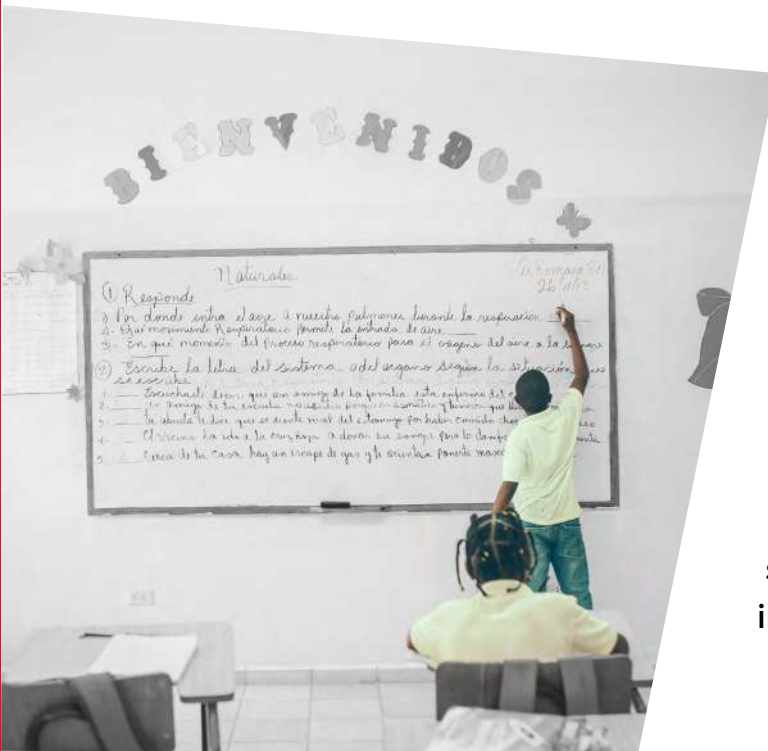 BIENVENIDOS
Naturales
La Romana RD
① Responde
1) Por donde entra el aire a nuestro pulmones durante la respiracion
2)- Que movimiento Respiratorio permite la entrada de aire
3)- En que momento del Proceso respiratorio pasa el oxigeno del aire a la sangre
② Escribe la letra del sistema o del organo segun la situación que
se escribe
1 Escuchaste decir que un amigo de la familia esta enfermo del
2 un amigo de tu escuela no
3 la abuela te dice que se siente mal del estomago por haber comido
4 El Vecino ha ido a la cruz roja a donar su sangre para
5 Cerca de tu casa hay un escape de gas y le orientan ponerse